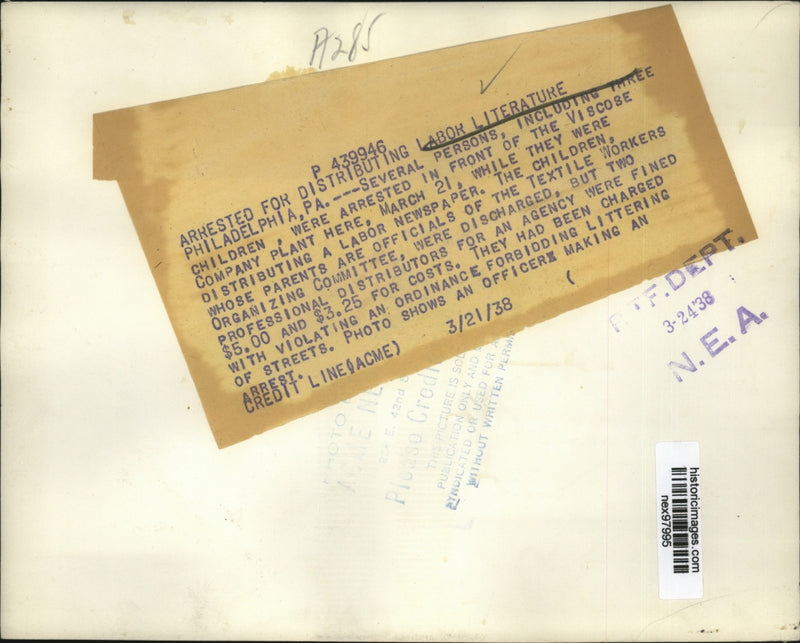 A285
P 439946
ARRESTED FOR DISTRIBUTING LABOR LITERATURE
PHILADELPHIA, PA.---SEVERAL PERSONS, INCLUDING THREE
CHILDREN , WERE ARRESTED IN FRONT OF THE VISCOSE
COMPANY PLANT HERE, MARCH 21, WHILE THEY WERE
DISTRIBUTING A LABOR NEWSPAPER. THE CHILDREN,
WHOSE PARENTS ARE OFFICIALS OF THE TEXTILE WORKERS
ORGANIZING COMMITTEE, WERE DISCHARGED, BUT TWO
PROFESSIONAL DISTRIBUTORS FOR AN AGENCY WERE FINED
$5.00 AND $3.25 FOR COSTS. THEY HAD BEEN CHARGED
WITH VIOLATING AN ORDINANCE FORBIDDING LITTERING
OF STREETS. PHOTO SHOWS AN OFFICER MAKING AN
ARREST.
CREDIT LINE(ACME) 3/21/38 (
DEPT.
3-24'38
N.E.A.
E. 42nd
Please Credi
THIS PICTURE IS SOL
PUBLICATION ONLY AND
SYNDICATED OR USED FOR A
WITHOUT WRITTEN PERM
historicimages.com
nex97995